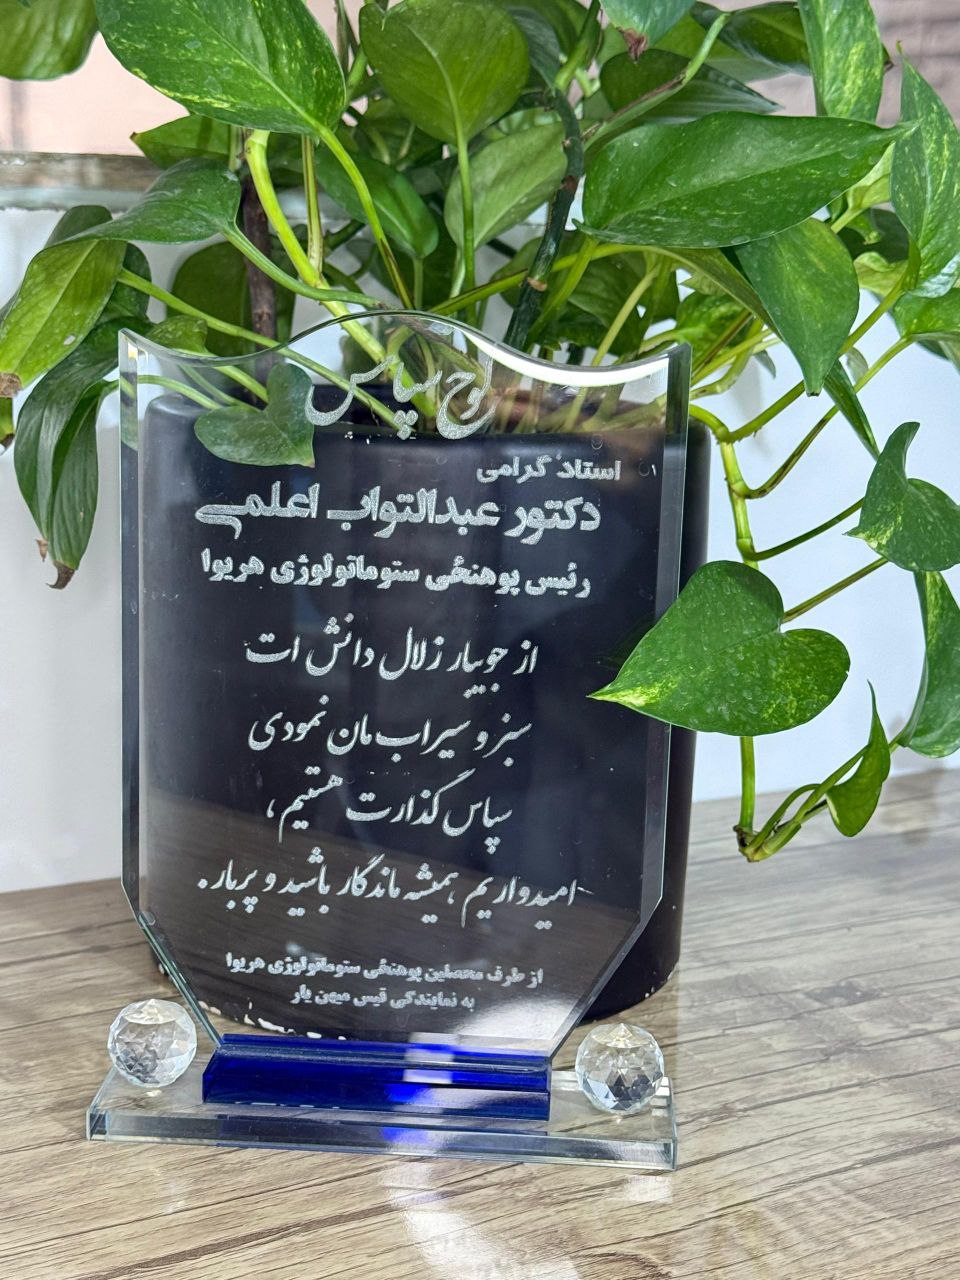 لوح سپاس
استاد گرامی
دکتور عبدالتواب اعلمی
رئیس پوهنځی ستوماتولوژی هریوا
از جویبار زلال دانش ات
سبز و سیراب مان نمودی
سپاس گذارت هستیم،
امیدواریم همیشه ماندگار باشید و پربار.
از طرف محصلین پوهنځی ستوماتولوژی هریوا
به نمایندگی قیس میهن یار